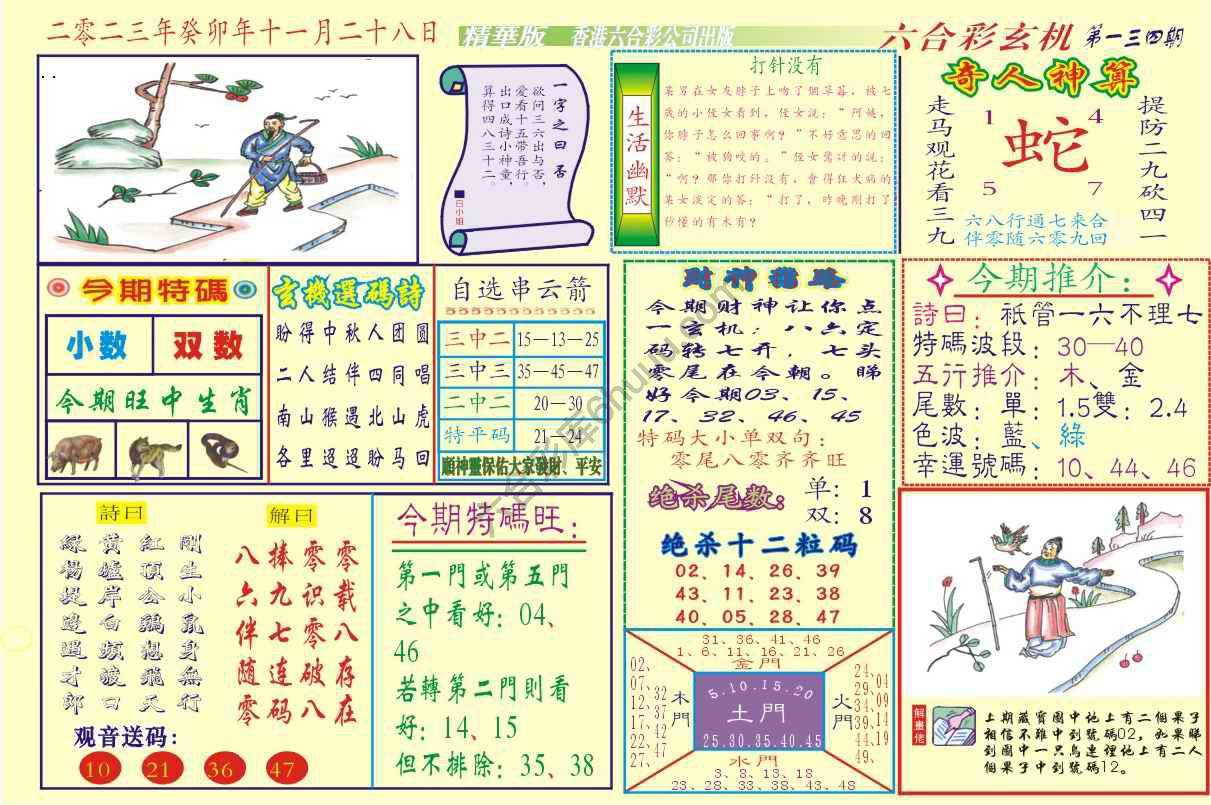 二零二三年癸卯年十一月二十八日
精華版 香港六合彩公司出版
六合彩玄机 第一三四期
一字之曰 否
欲问三六出与否,
爱看十五带吾行。
出口成诗小神童,
算得四八三十二。
白小姐
生活幽默
打针没有
某男在女友脖子上吻了個草莓,被七
歲的小侄女看到,侄女说:"阿姨,
你脖子怎么回事啊?"不好意思的回
答:"被狗咬的。"侄女驚讶的说:
"啊?那你打针没有,會得狂犬病的
某女淡定的答:"打了,昨晚刚打了
秒懂的有木有?
奇人神算
走马观花看三九
1 4
蛇
5 7
提防二九砍四一
六八行通七来合
伴零随六零九回
今期特碼
小数
双数
今期旺中生肖
玄機選碼詩
盼得中秋人团圆
二人结伴四同唱
南山猴遇北山虎
各里迢迢盼马回
自选串云箭
三中二 15—13—25
三中三 35—45—47
二中二 20—30
特平码 21—24
順神靈保佑大家發財、平安
財神猪略
今期财神让你点
一玄机:八六定
码转七开,七头
零尾在今朝。睇
好今期03、15、
17、32、46、45
特码大小单双句:
零尾八零齐齐旺
绝杀尾数:
单:1
双:8
绝杀十二粒码
02、14、26、39
43、11、23、38
40、05、28、47
今期推介:
詩曰:祇管一六不理七
特碼波段:30—40
五行推介:木、金
尾數:單:1.5雙:2.4
色波:藍、綠
幸運號碼:10、44、46
詩曰
綠楊堤邊遇才郎
黄爐岸白蘋渡口
紅頂公鷄想飛天
剛生小鼠身無行
解曰
八六伴随零
捧九七连码
零识零破八
零载八存在
观音送码:
10 21 36 47
今期特碼旺:
第一門或第五門
之中看好:04、
46
若轉第二門則看
好:14、15
但不排除:35、38
31、36、41、46
1、6、11、16、21、26
金門
02、
07、
12、
17、
22、
27、
32
37
42
47
木門
5.10.15.20
土門
25.30.35.40.45
火門
24、
29、
34、
39、
44、
49、
04
09
14
19
水門
3、8、13、18
23、28、33、38、43、48
解畫佬
上期藏寳圖中地上有二個果子
相信不難中到號碼02,如果睇
到圖中一只鳥連徑地上有二人
個果子中到號碼12。
六合彩库6huuu.com